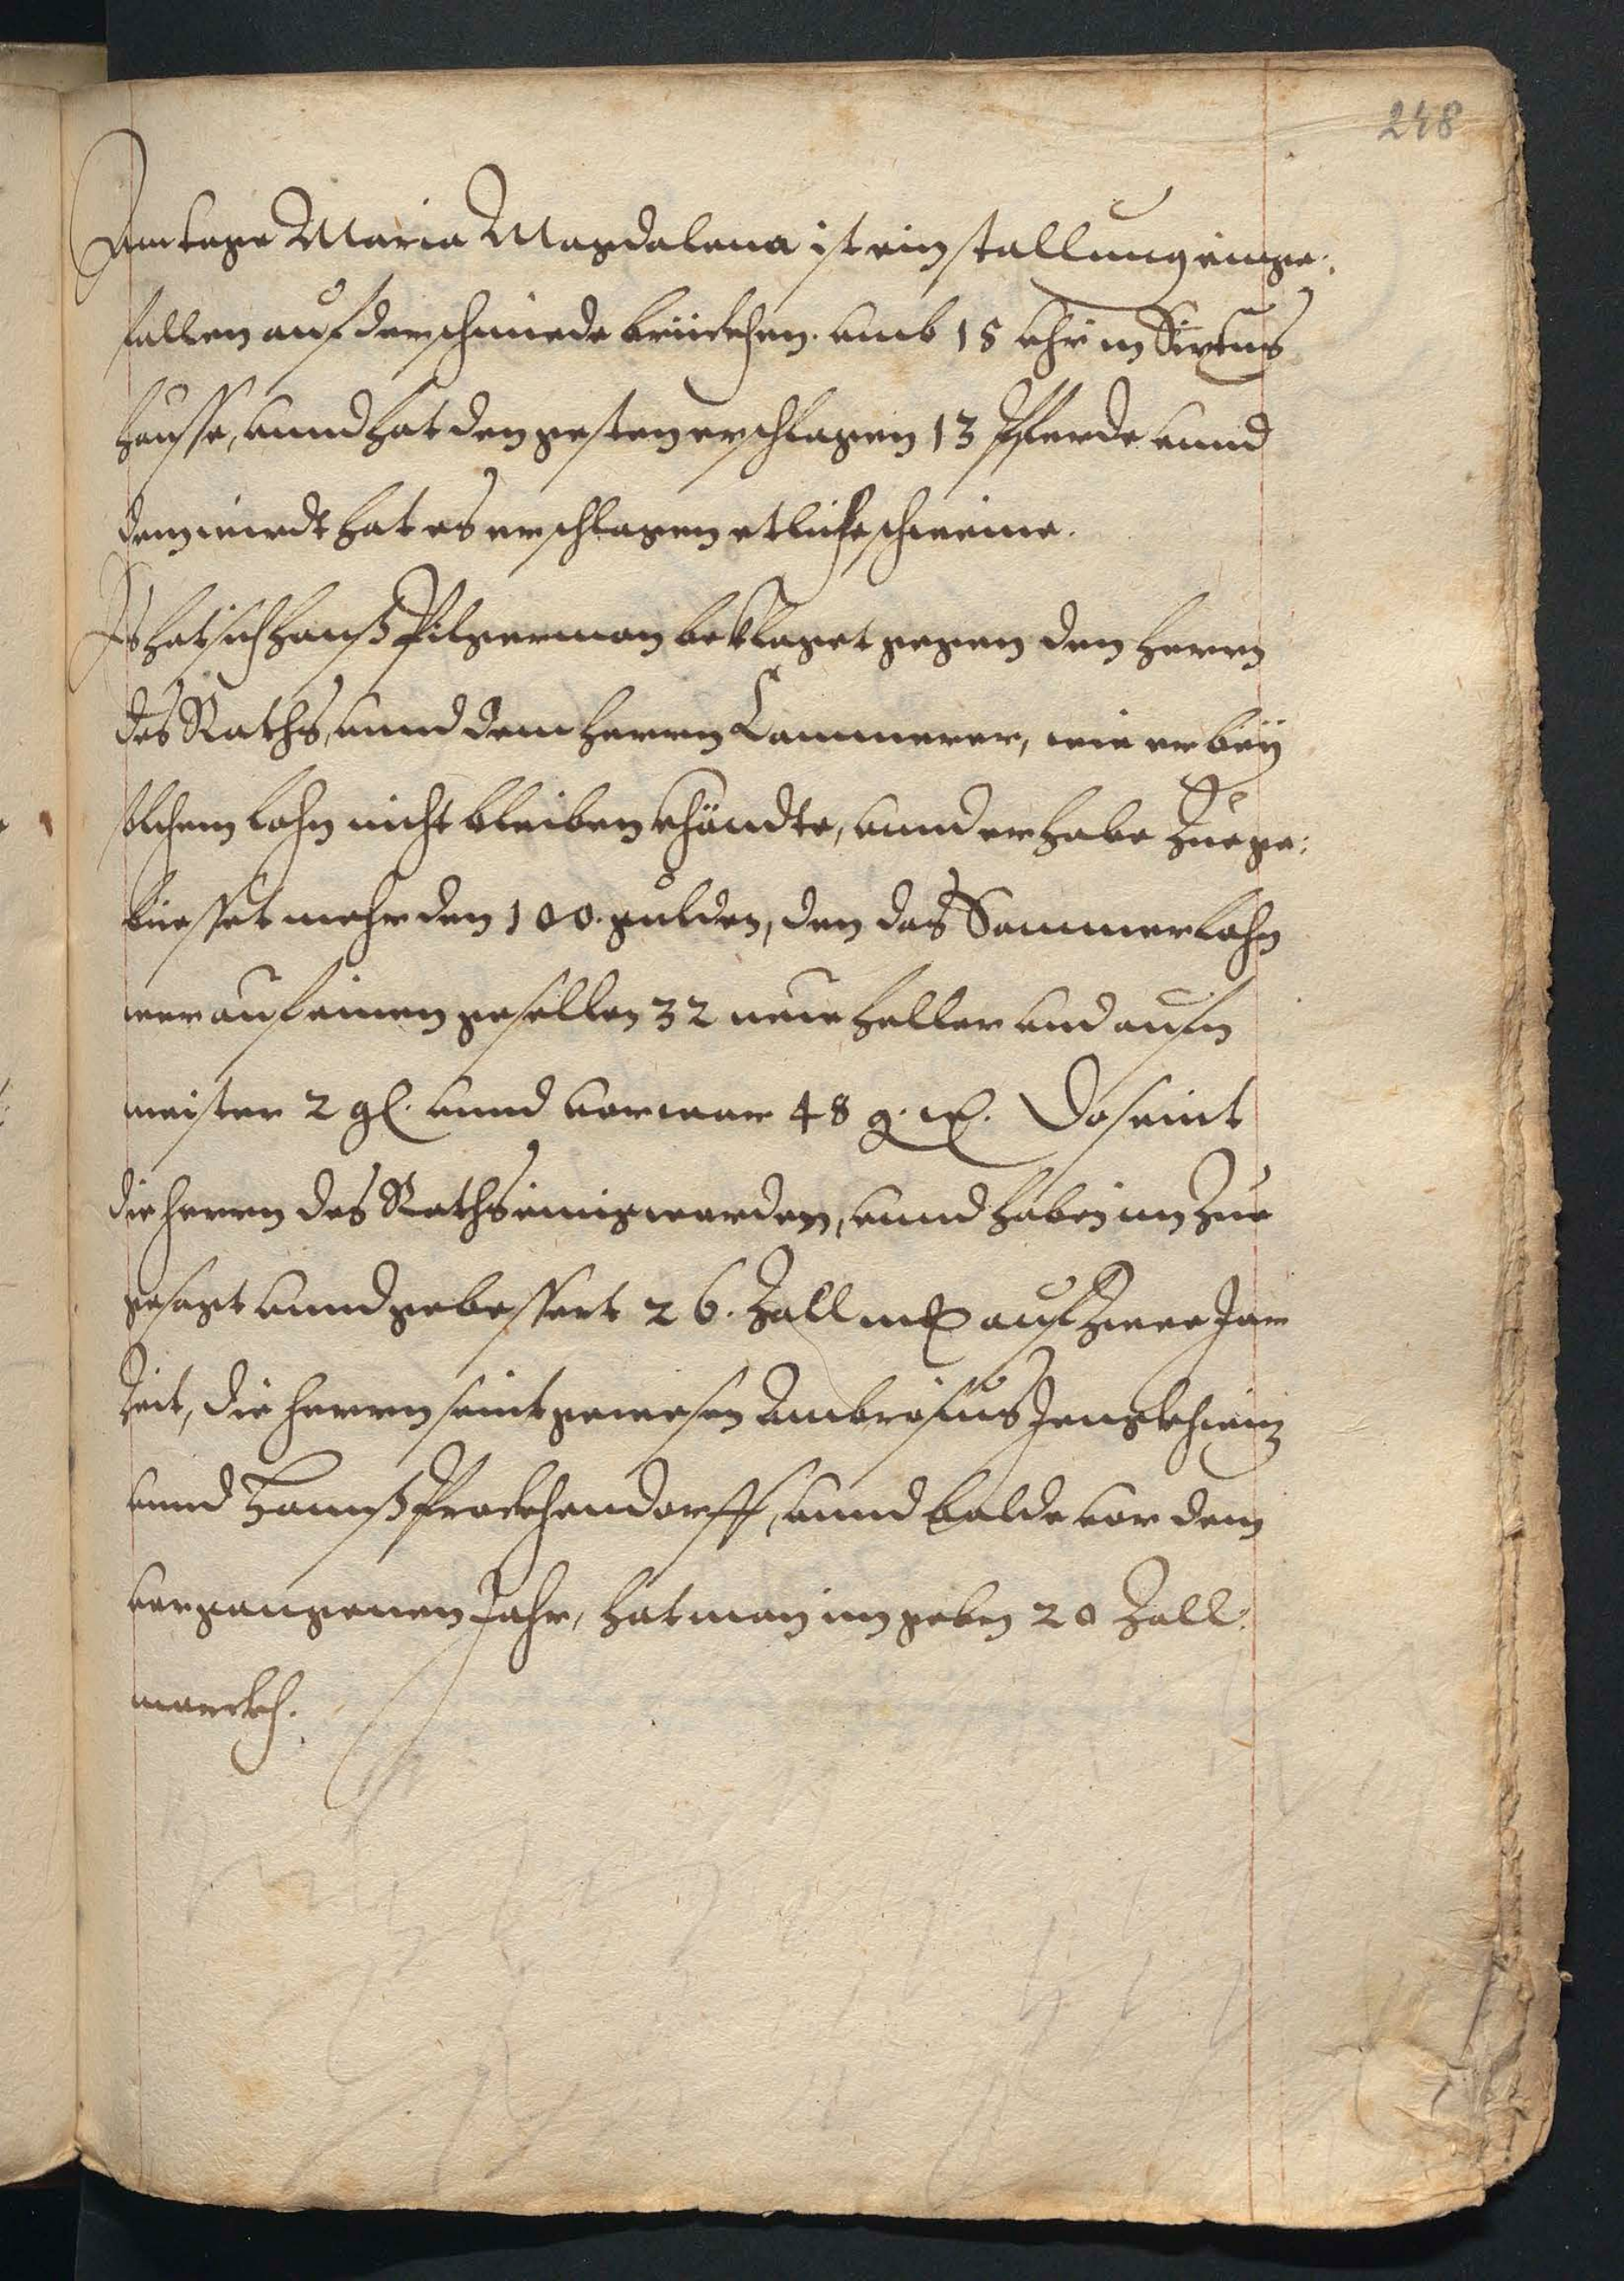 248
Am tage Maria Magdalena ist ein stallung einge:
fallen auf der schmiede brückhen. umb 15 uhr in Sixtus
hausse, unnd hat den gesten erschlagen 13 Pferde unnd
dem wirdt hat es erschlagen etliche schweine.
Es hat sich Hanß Pilgerman beklaget gegen den herrn
des Raths, unnd dem herrn Cammerer, wie er beÿ
solchem lohn nicht bleiben khöndte, unnd er habe zue ge:
büesset mehr den 100. gulden, den das Sommerlohn
wer auf einen gesellen 32 neue heller und aufn
meister 2 gl. unnd vor war 48 g. Do seint
die herrn des Raths einig worden, unnd haben im zue
gesagt unnd gebessert 26. Zall auf zwee Jar
Zeit, die herrn seint gewesen Ambrosius Jenckhwiz
unnd Hannß Prockhendorff, unnd balde vor dem
vergangenen Jahr, hat man im geben 20 Zall
marckh.